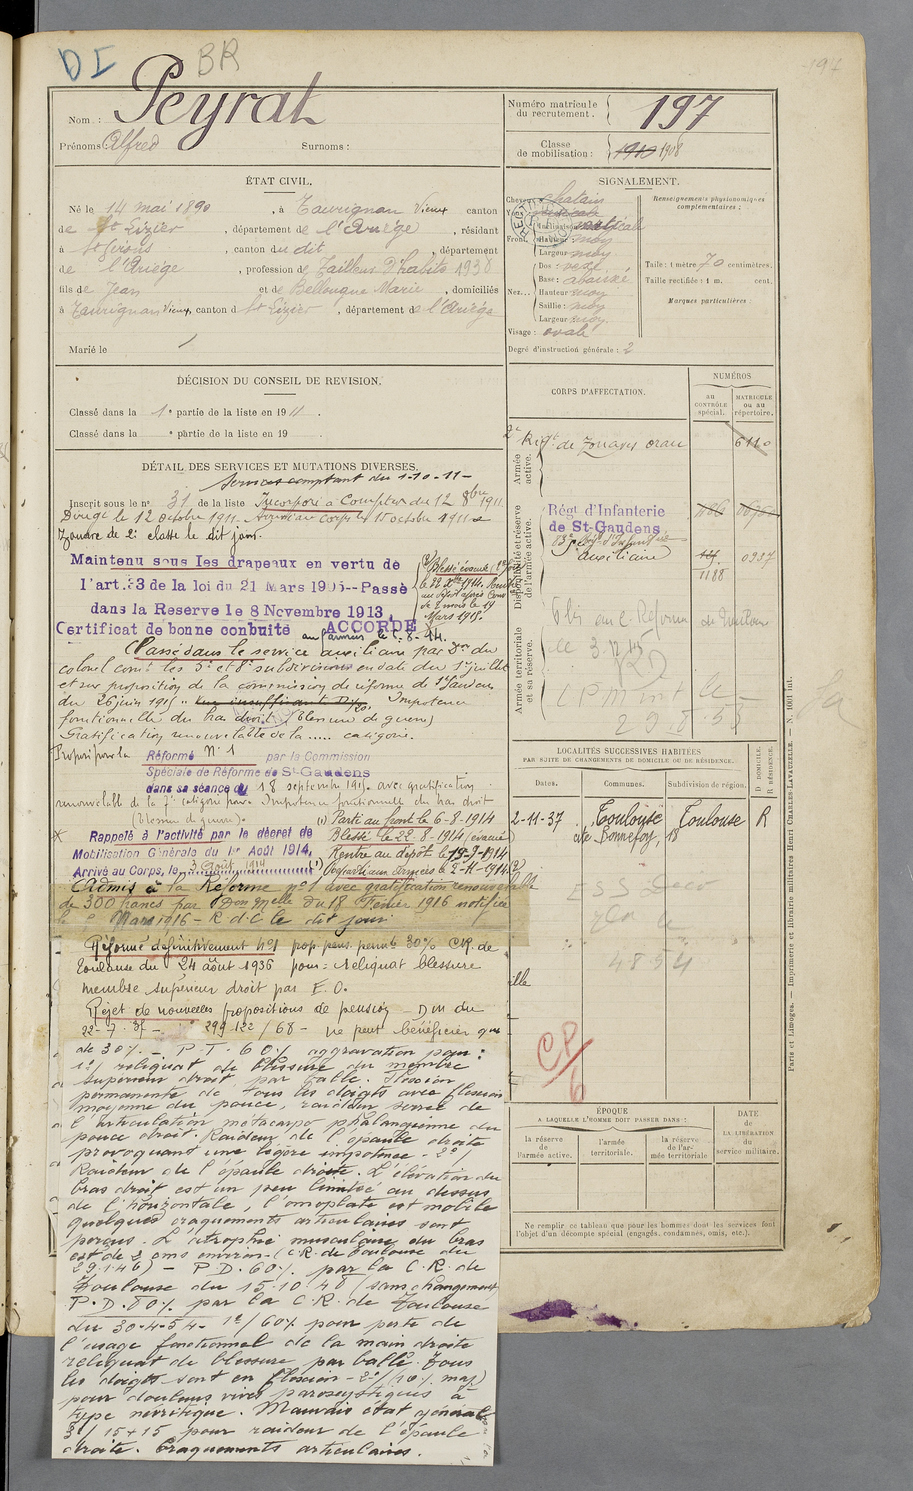 DI BR
Nom : Peyrat
Prénoms : Alfred Surnoms :
Numéro matricule du recrutement. 197
Classe de mobilisation : 1910 1908
ÉTAT CIVIL.
Né le 14 mai 1890, à Taurignan Vieux canton
de St Lizier, département de l'Ariège, résidant
à St Girons, canton du dit, département
de l'Ariège, profession de Tailleur d'habits 1938
fils de Jean et de Bellouque Marie, domiciliés
à Taurignan Vieux, canton de St Lizier, département de l'Ariège
Marié le /
SIGNALEMENT.
Cheveux châtain
Yeux
Front, Inclinaison verticale
Hauteur moy
Largeur moy
Nez... Dos : vexe
Base : abaissé
Hauteur moy
Saillie : moy
Largeur moy
Visage : ovale
Degré d'instruction générale : 2
Renseignements physionomiques complémentaires :
Taille : 1 mètre 70 centimètres.
Taille rectifiée : 1 m. cent.
Marques particulières :
DÉCISION DU CONSEIL DE REVISION.
Classé dans la 1e partie de la liste en 1911.
Classé dans la e partie de la liste en 19
DÉTAIL DES SERVICES ET MUTATIONS DIVERSES.
Services comptant du 1-10-11-
Inscrit sous le no 31 de la liste Incorporé à Compter du 12 8bre 1911
Dirigé le 12 octobre 1911. Arrivé au corps le 15 octobre 1911 &
Zouave de 2e classe le dit jour.
Maintenu sous les drapeaux en vertu de
l'art.33 de la loi du 21 Mars 1905--Passé
dans la Reserve le 8 Novembre 1913,
Certificat de bonne conduite ACCORDÉ
Blessé évacué
le 22
Mars 1915.
Passé dans le service auxiliaire par Don du
colonel comt les 3e et 8e subdivisions en date du 1er juillet
et sur proposition de la commission de réforme de St Gaudens
du 26 juin 1915 Impotence
fonctionnelle du bras droit (blessure de guerre)
Gratification renouvelable de la ..... catégorie.
Proposé pour la Réforme N° 1 par la Commission
Spéciale de Réforme de St-Gaudens
dans sa séance du 18 septembre 1915. avec gratification
renouvelable de la 7e catégorie pour Impotence fonctionnelle du bras droit
(blessure de guerre). (1) Parti au front le 6-8-1914
Rappelé à l'activité par le décret de
Mobilisation Générale du 1er Août 1914,
Arrivé au Corps, le 3 Août 1914
Blessé le 22-8-1914 (évacué)
Rentré au dépôt le 19-9-1914
Reparti aux armées le 2-11-1914 (2)
Admis à la Réforme no 1 avec gratification renouvelable
de 300 francs par Don Mlle du 18 Février 1916 notifiée
le Mars 1916 - R d C le dit jour
Réformé définitivement no 1 prop. pens. permte 30% C.R. de
Toulouse du 24 août 1936 pour : Reliquat blessure
membre supérieur droit par E.O.
Rejet de nouvelles propositions de pension - D M du
22-7-37 - 299-122/68 - ne peut bénéficier que
de 30%. - P.T. 60% aggravation pour :
1°/ reliquat de blessure du membre
supérieur droit par balle. Flexion
permanente de tous les doigts avec flexion
moyenne du pouce, raideur serrée de
l'articulation métacarpo phalangienne du
pouce droit. Raideur de l'épaule droite
provoquant une légère impotence. 2°/
Raideur de l'épaule droite. L'élévation du
bras droit est un peu limitée au dessus
de l'horizontale, l'omoplate est mobile
quelques craquements articulaires sont
perçus. L'atrophie musculaire du bras
est de 2 cms environ (C.R. de Toulouse du
29.1.46) - P.D. 60% par la C.R. de
Toulouse du 15.10.48 / sans changement
P.D. 80% par la C.R. de Toulouse
du 30-4-54 - 1°/ 60% pour perte de
l'usage fonctionnel de la main droite
reliquat de blessure par balle. Tous
les doigts sont en flexion - 2°/ (10% maj)
pour douleurs vives paroxystiques à
type névritique. Mauvais état général
3°/ 15+15 pour raideur de l'épaule
droite. Craquements articulaires.
CORPS D'AFFECTATION.
NUMÉROS
au contrôle spécial.
matricule ou au répertoire.
Armée active.
2e Régt de Zouaves Oran 6110
Disponibilité et réserve de l'armée active.
Régt d'Infanterie
de St-Gaudens
Auxiliaire 1188 0937
Armée territoriale et sa réserve.
de Toulouse
le 3.12.45
RD
LOCALITÉS SUCCESSIVES HABITÉES
PAR SUITE DE CHANGEMENTS DE DOMICILE OU DE RÉSIDENCE.
Dates. Communes. Subdivision de région. D DOMICILE R RÉSIDENCE.
2-11-37 Toulouse Toulouse R
cité Bonnefoy, 18
CP/6
ÉPOQUE
A LAQUELLE L'HOMME DOIT PASSER DANS :
la réserve de l'armée active.
l'armée territoriale.
la réserve de l'armée territoriale
DATE de LA LIBÉRATION du service militaire.
Ne remplir ce tableau que pour les hommes dont les services font
l'objet d'un décompte spécial (engagés, condamnés, omis, etc.).
Paris et Limoges. — Imprimerie et librairie militaires Henri CHARLES-LAVAUZELLE. — N. 1001 int.